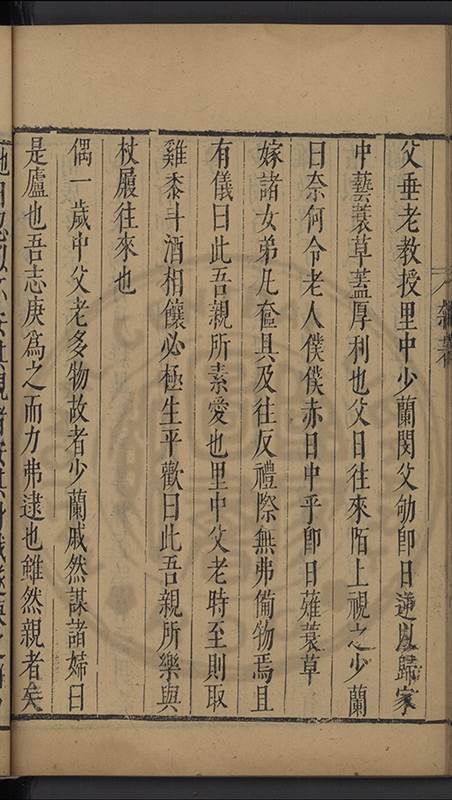 雜著
父垂老教授里中少蘭閔父劬卽日逆以歸家
中藝蓑草蓋厚利也父日往來陌上視之少蘭
曰奈何令老人僕僕赤日中乎卽日薙蓑草
嫁諸女弟凡奩具及往反禮際無弗備物焉且
有儀曰此吾親所素愛也里中父老時至則取
雞黍斗酒相饟必極生平歡曰此吾親所樂與
杖屨往來也
偶一歲中父老多物故者少蘭戚然謀諸婦曰
是廬也吾志庚爲之而力弗逮也雖然親者矣